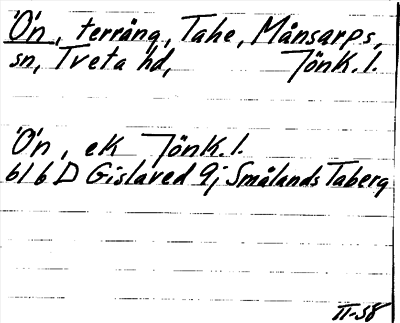 Ö'n, terräng, Tahe, Månsarps,
sn, Tveta hd, Jönk. l.
Ö'n, ek Jönk. l.
616 D Gislaved 9j Smålands Taberg
II-58